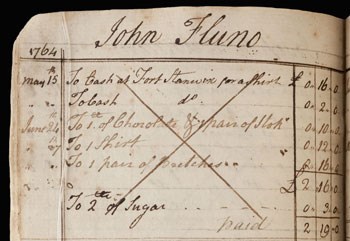 John Fluno
1764
May 15 To Cash at Fort Stanwix for a Shirt £ 0 16 0
" " To Cash do. 0 2 0
June 24 To 1 lb of Chocolate & 1 pair of 0 10 0
" 27 To 1 Shirt 0 12 0
To 1 pair of breeches 16 0
£ 2 16 0
To 2 lb of Sugar 0 3 0
paid 2 19 0